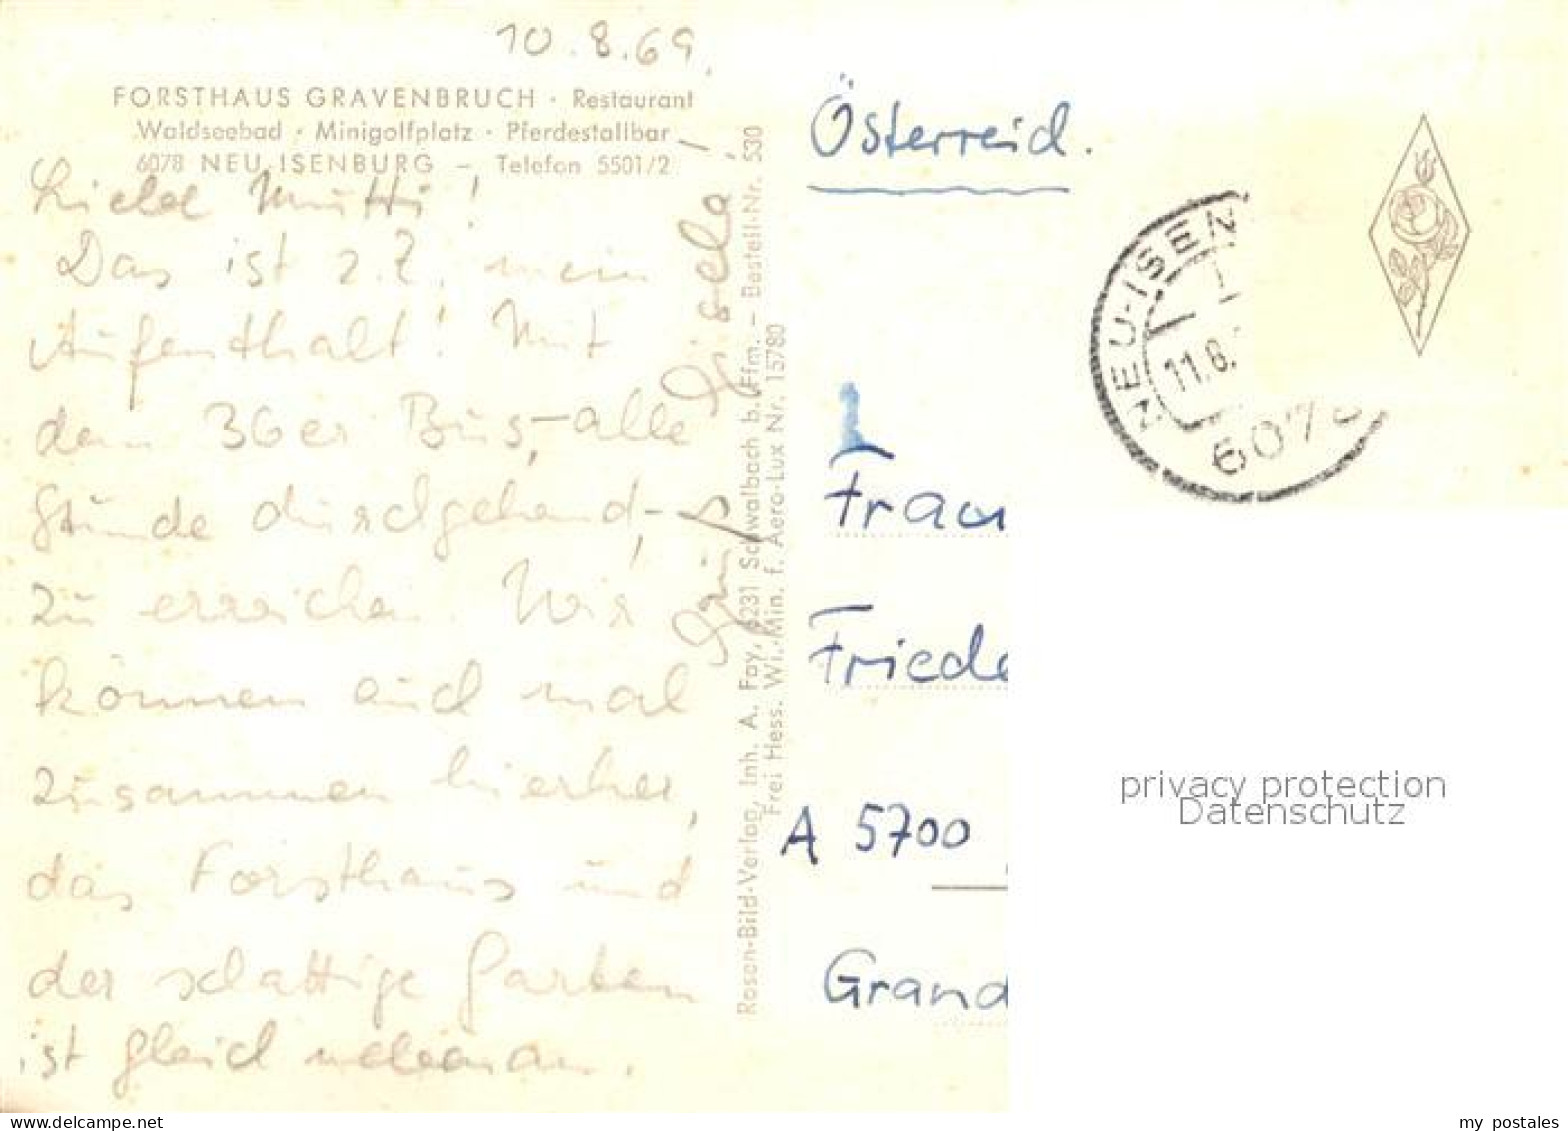 10.8.69.
FORSTHAUS GRAVENBRUCH · Restaurant
Waldseebad · Minigolfplatz · Pferdestallbar
6078 NEU ISENBURG – Telefon 5501/2
Liebe Mutti!
Das ist z.Z. mein
Aufenthalt! Mit
dem 36er Bus,-alle
Stunde durchgehend,-
zu erreichen. Wir
können auch mal
zusammen hierher,
das Forsthaus und
der schattige Garten
ist gleich nebenan.
Gisela!
Rosen-Bild-Verlag, Inh. A. Fay, 6231 Schwalbach b. Ffm. – Bestell-Nr. 530
Frei Hess. Wi.-Min. f. Aero-Lux Nr. 15780
Österreich.
NEU-ISEN
11.8.
607
Frau
Friede
A 5700
Grand
privacy protection
Datenschutz
www.delcampe.net
my_postales